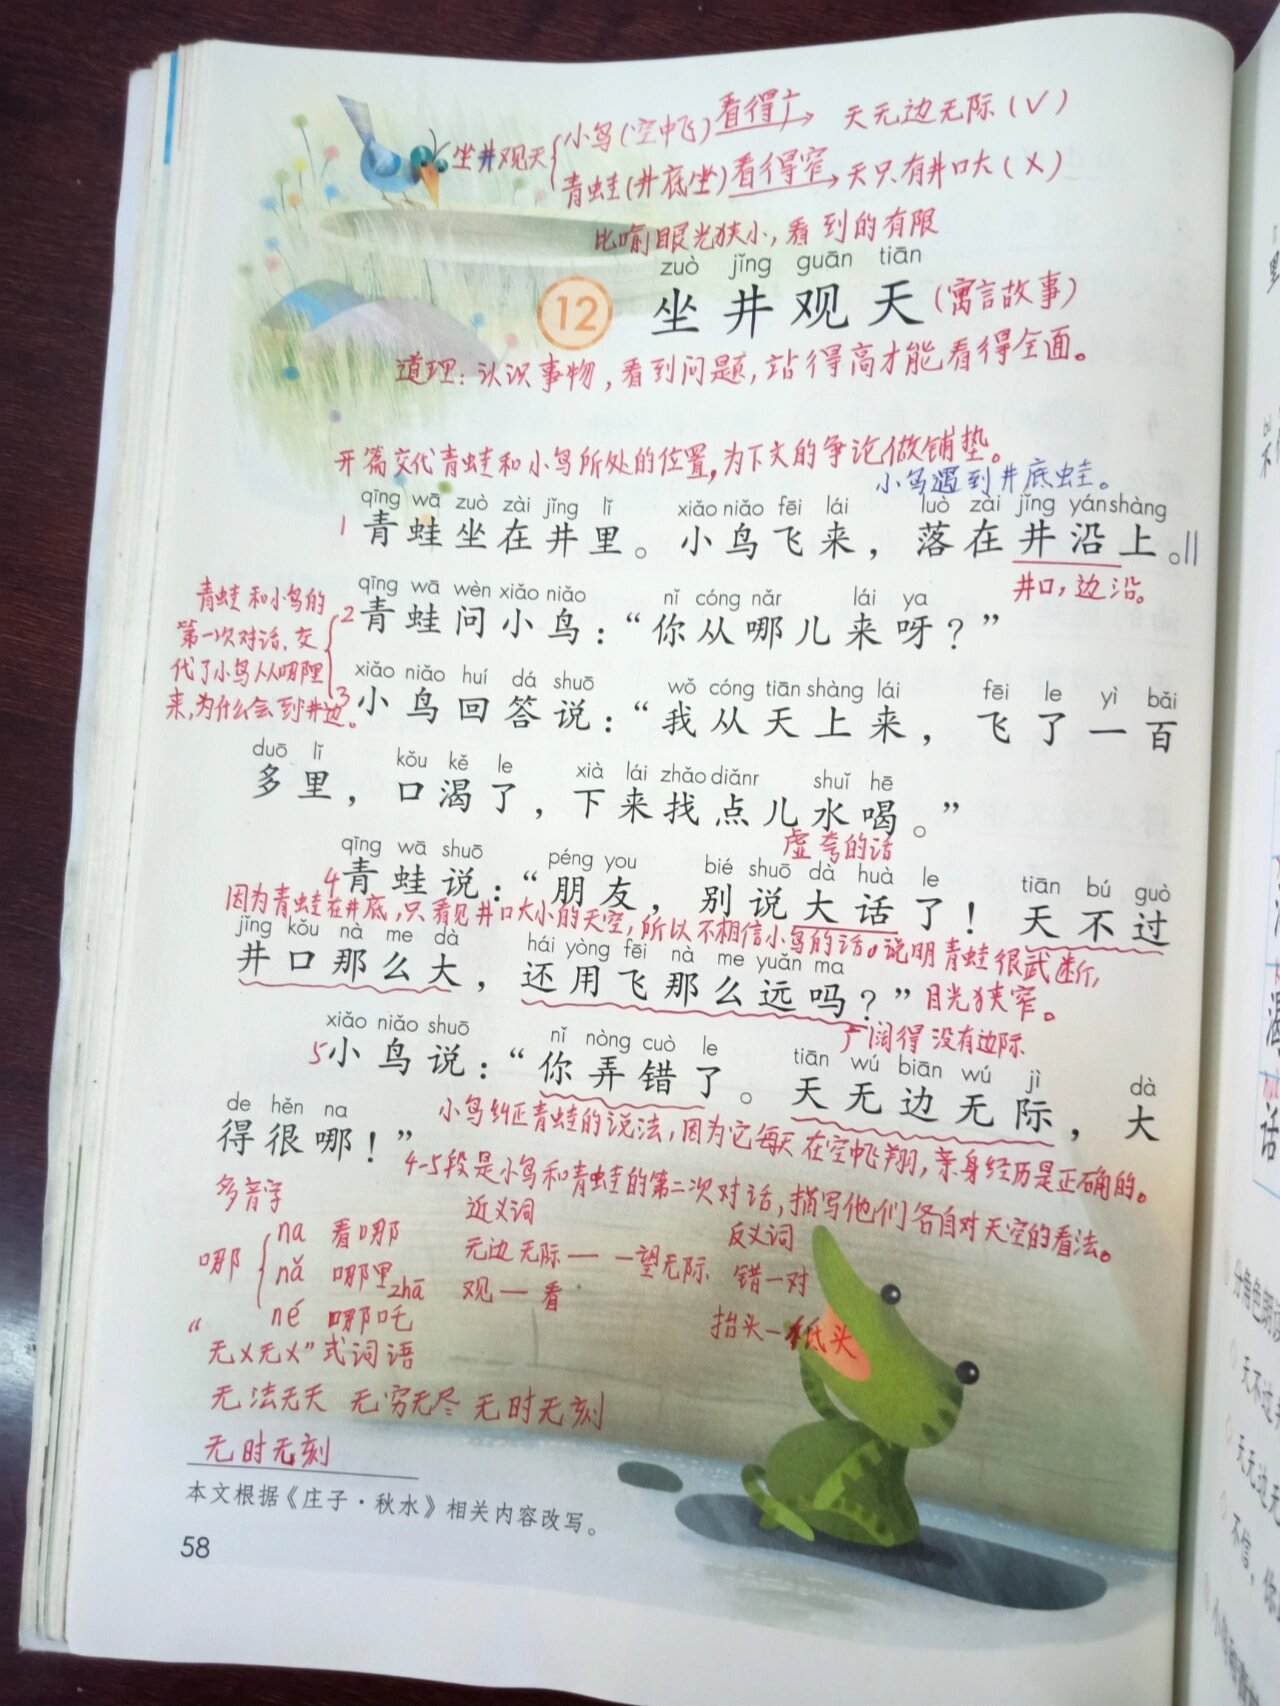 坐井观天{小鸟(空中飞)看得广→ 天无边无际(√)
青蛙(井底坐)看得窄→天只有井口大(×)
比喻眼光狭小,看到的有限
zuò jǐng guān tiān
12 坐井观天(寓言故事)
道理:认识事物,看到问题,站得高才能看得全面。
开篇交代青蛙和小鸟所处的位置,为下文的争论做铺垫。
小鸟遇到井底蛙。
qīng wā zuò zài jǐng lǐ xiǎo niǎo fēi lái luò zài jǐng yán shàng
1 青蛙坐在井里。小鸟飞来,落在井沿上。||
井口,边沿。
青蛙和小鸟的
第一次对话,交
代了小鸟从哪里
来,为什么会到井边。
qīng wā wèn xiǎo niǎo nǐ cóng nǎr lái ya
2 青蛙问小鸟:“你从哪儿来呀?”
xiǎo niǎo huí dá shuō wǒ cóng tiān shàng lái fēi le yì bǎi
3 小鸟回答说:“我从天上来,飞了一百
duō lǐ kǒu kě le xià lái zhǎo diǎnr shuǐ hē
多里,口渴了,下来找点儿水喝。”
虚夸的话
qīng wā shuō péng you bié shuō dà huà le tiān bú guò
4 青蛙说:“朋友,别说大话了!天不过
因为青蛙在井底,只看见井口大小的天空,所以不相信小鸟的话。说明青蛙很武断,
jǐng kǒu nà me dà hái yòng fēi nà me yuǎn ma
井口那么大,还用飞那么远吗?”
目光狭窄。
广阔得没有边际
xiǎo niǎo shuō nǐ nòng cuò le tiān wú biān wú jì dà
5 小鸟说:“你弄错了。天无边无际,大
de hěn na
得很哪!”
小鸟纠正青蛙的说法,因为它每天在空中飞翔,亲身经历是正确的。
4-5段是小鸟和青蛙的第二次对话,描写他们各自对天空的看法。
多音字
哪{na 看哪
nǎ 哪里
né 哪吒
zhā
近义词
无边无际——一望无际
观—看
反义词
错—对
抬头—低头
“无×无×”式词语
无法无天 无穷无尽 无时无刻
无时无刻
本文根据《庄子·秋水》相关内容改写。
58
分角色朗读
天不过
天无边无
不信,
话